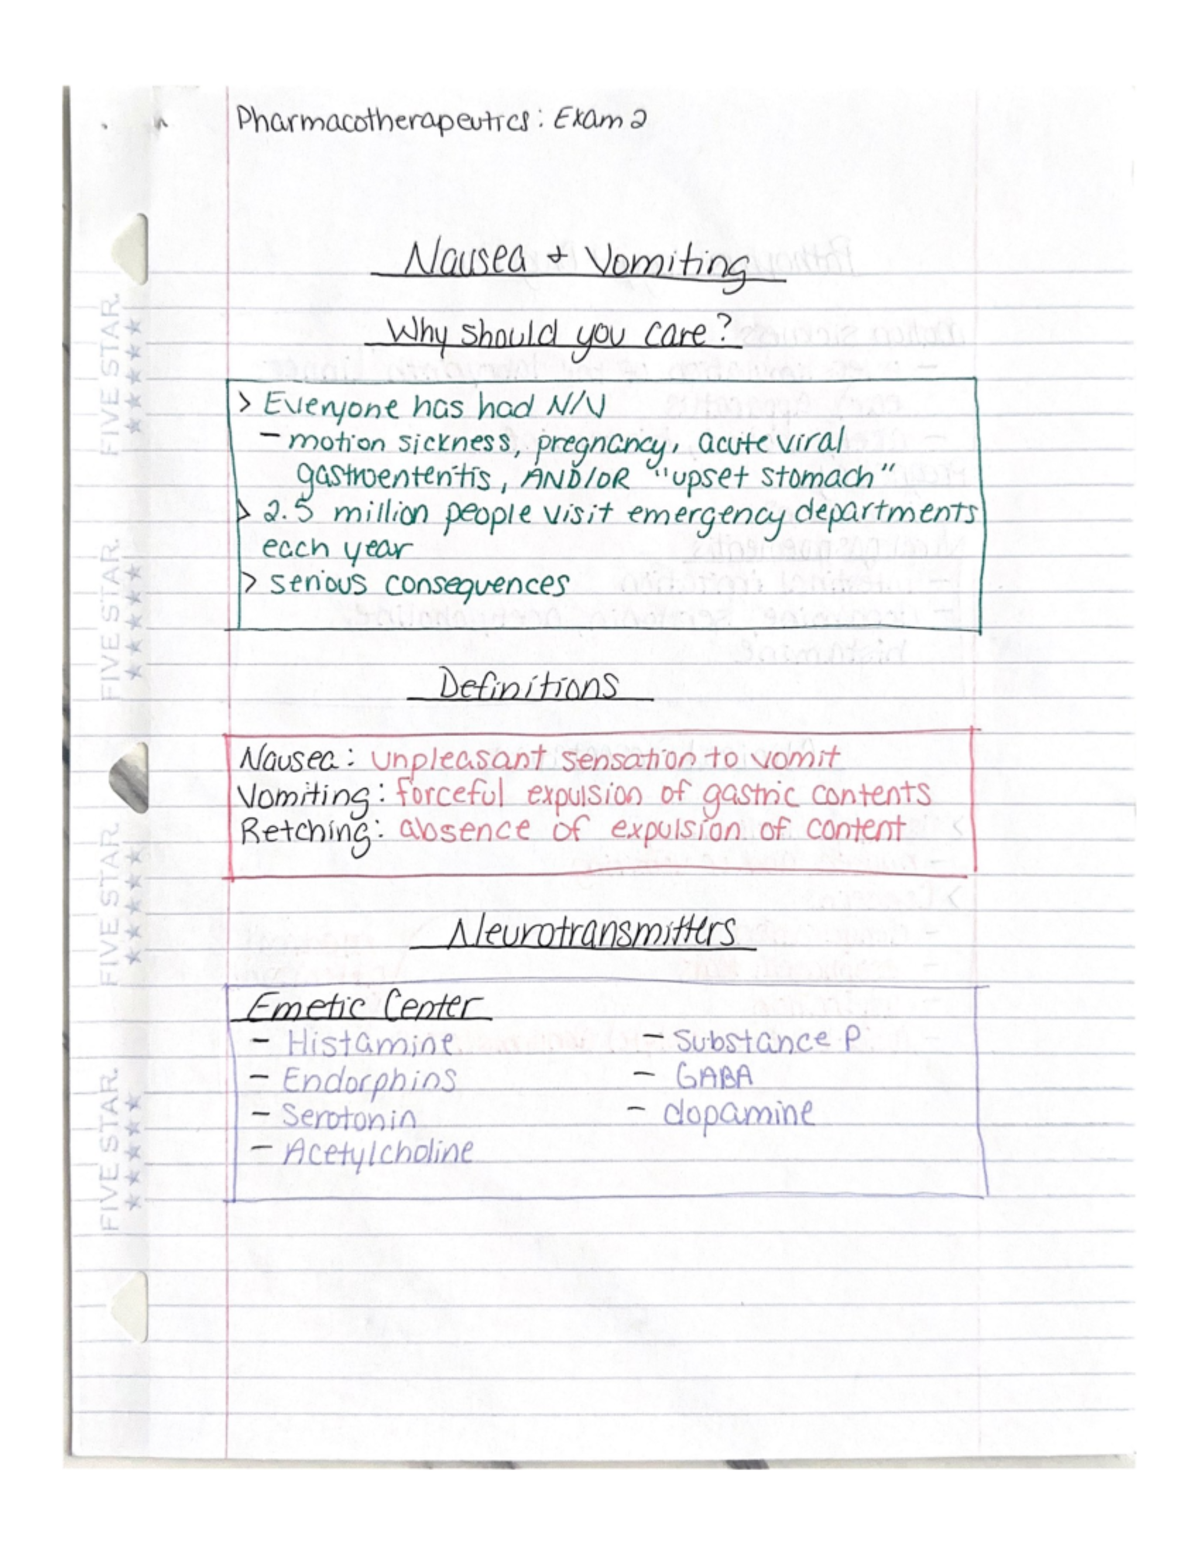 Pharmacotherapeutics: Exam 2
Nausea + Vomiting
Why should you care?
> Everyone has had N/V
- motion sickness, pregnancy, acute viral
gastroenteritis, AND/OR "upset stomach"
> 2.5 million people visit emergency departments
each year
> serious consequences
Definitions
Nausea: unpleasant sensation to vomit
Vomiting: forceful expulsion of gastric contents
Retching: absence of expulsion of content
Neurotransmitters
Emetic Center
- Histamine - Substance P
- Endorphins - GABA
- Serotonin - dopamine
- Acetylcholine
FIVE STAR.
FIVE STAR.
FIVE STAR.
FIVE STAR.